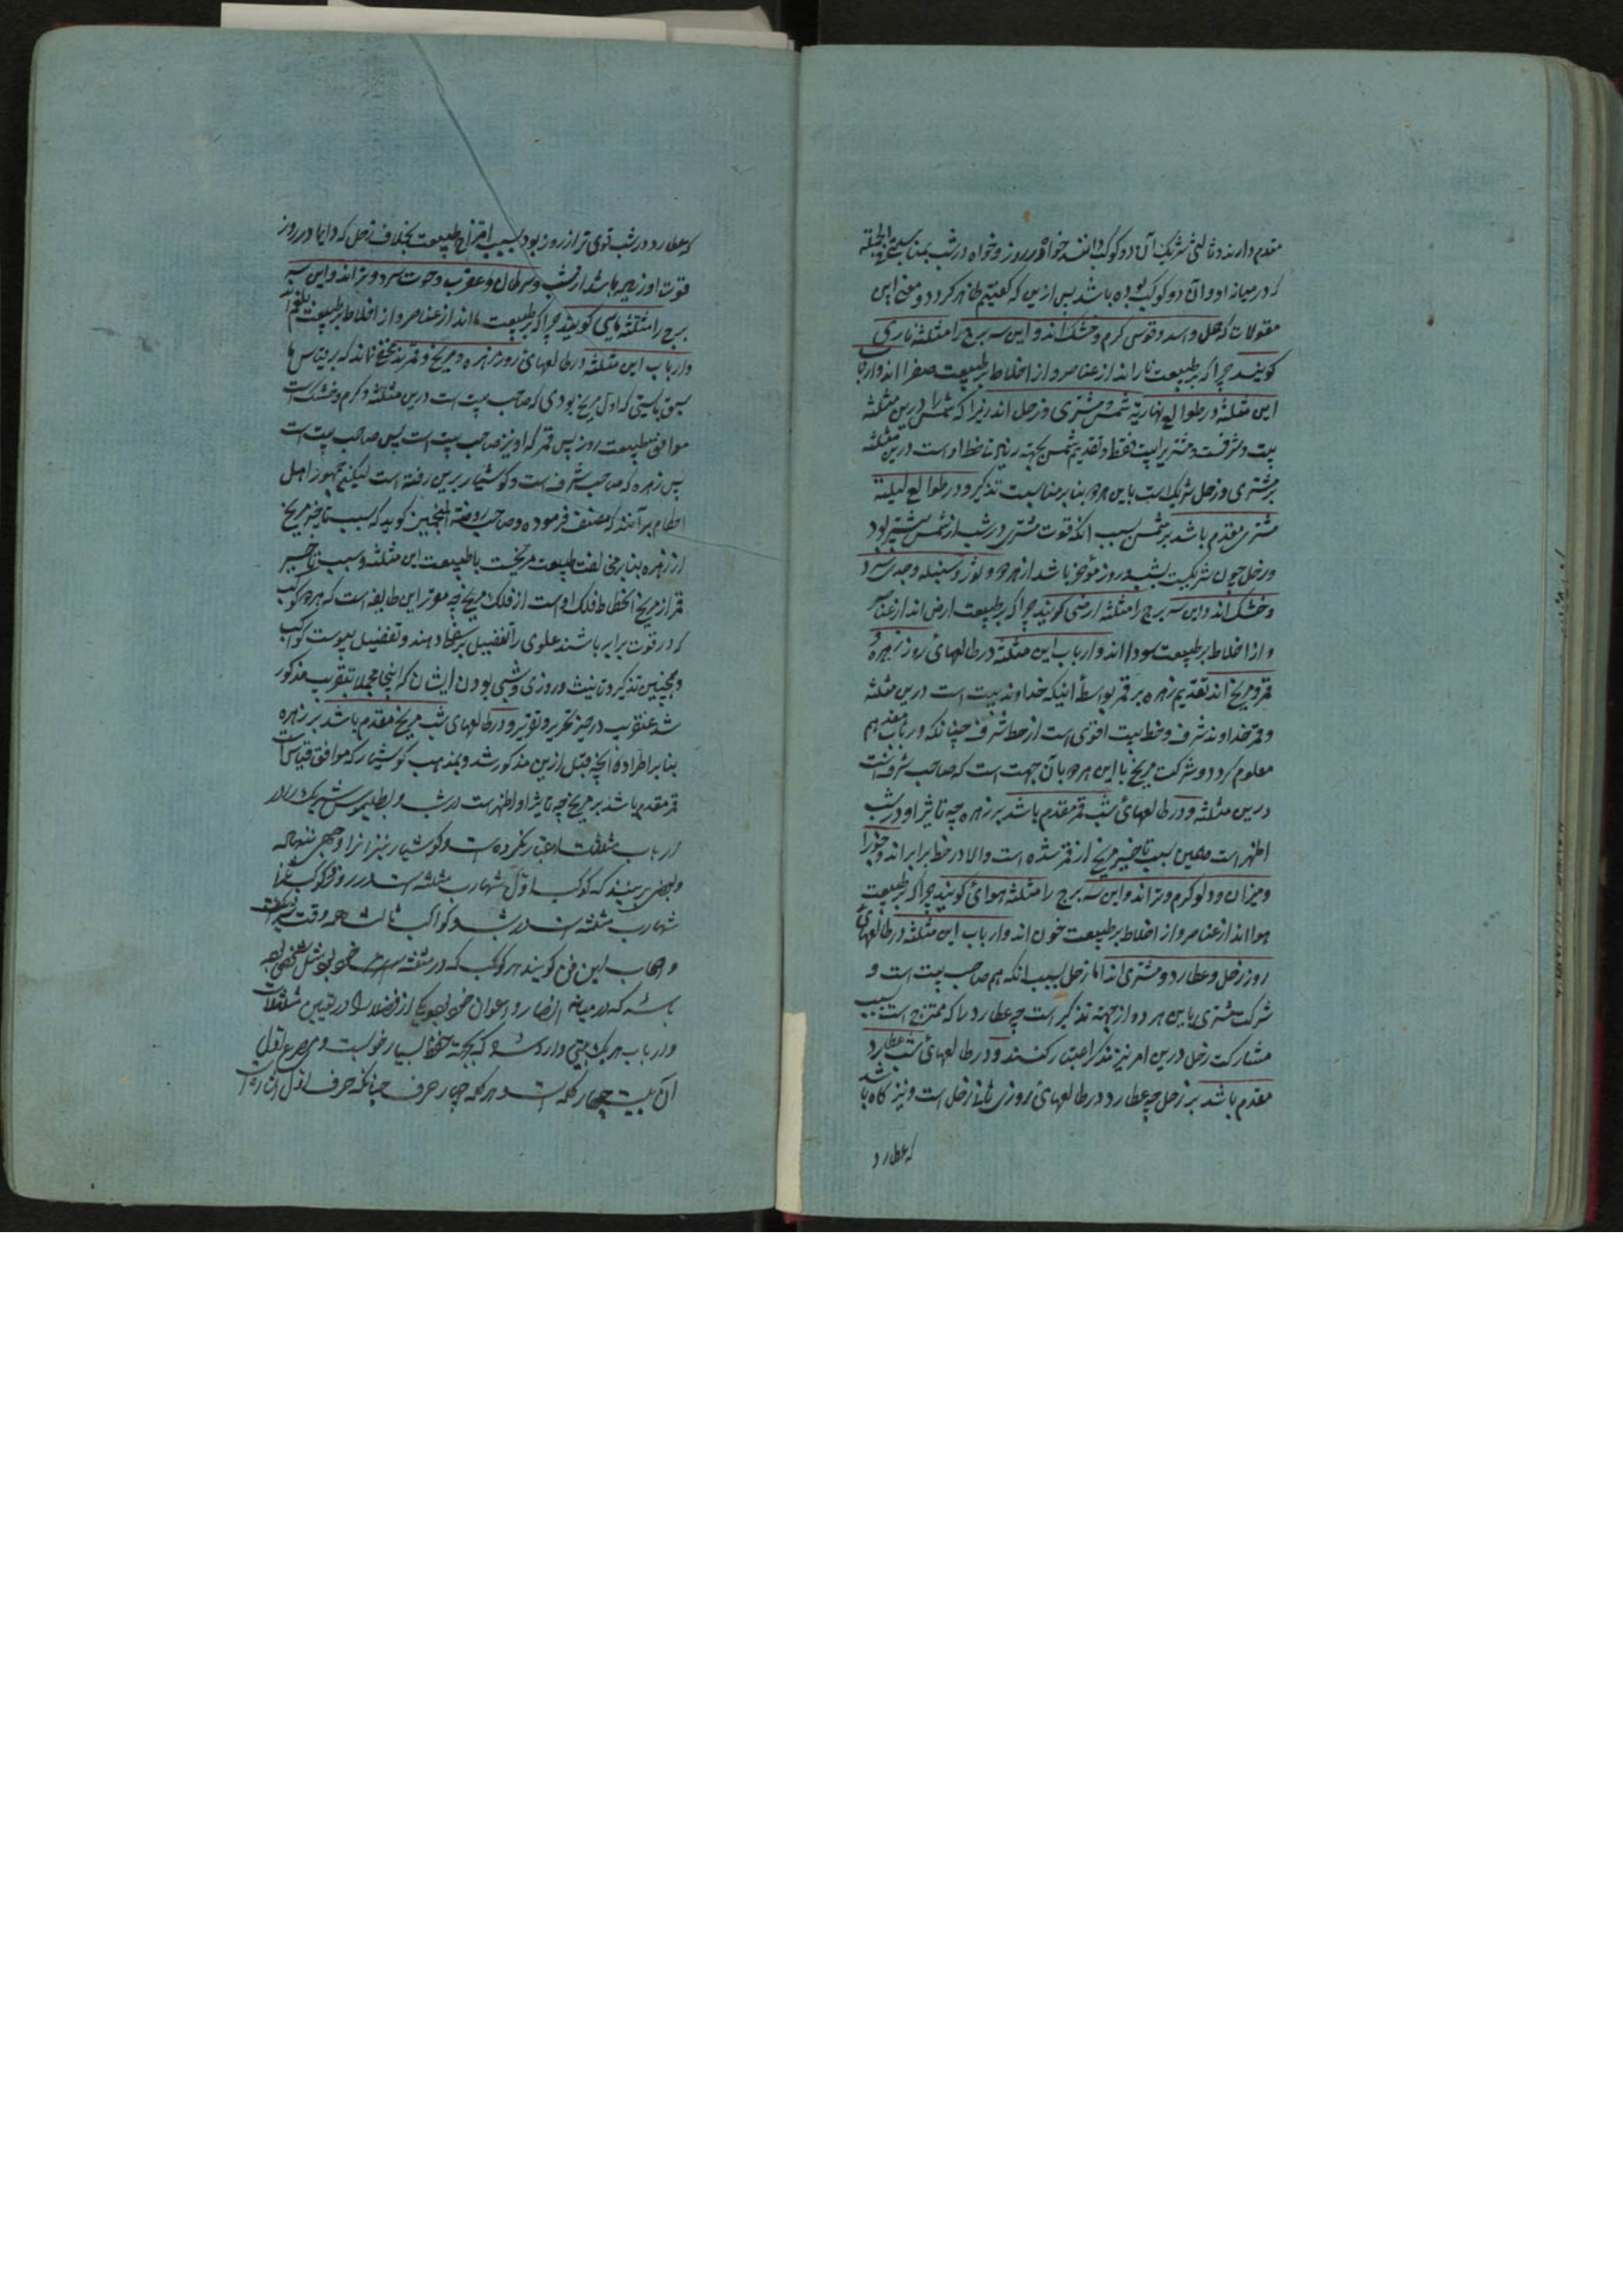 مقدم دارند و ثالثی شریک آن دو کوکب دانند خواه در روز و خواه در شب بمناسبتی فی الجمله
که در میانه او و آن دو کوکب بوده باشد پس ازین که گفتیم ظاهر کردد و معنی این
مقولات که حمل و اسد و قوس کرم و خشک‌اند و این سه برج را مثلثه ناری
کویند چرا که بر طبیعت نار اند از عناصر و از اخلاط بر طبیعت صفرا اند و ارباب
این مثلثه در طوالع نهاریه شمس و مشتری و زحل اند زیرا که شمس را درین مثلثه
بیت و شرفست و مشتری را بیت فقط و تقدیم شمس بجهة زیادتی حظ اوست درین مثلثه
بر مشتری و زحل شریکست باین هر دو بنا بر مناسبت تذکیر و در طوالع لیلیه
مشتری مقدم باشد بر شمس بسبب آنکه قوت مشتری در شب از شمس بیشتر بود
و زحل چون شریکست بشب و روز مؤخر باشد از هر دو و ثور و سنبله و جدی سرد
و خشک‌اند و این سه برج را مثلثه ارضی کویند چرا که بر طبیعت ارض اند از عناصر
و از اخلاط بر طبیعت سودا اند و ارباب این مثلثه در طالعهای روز زهره و
قمر و مریخ اند تقدیم زهره بر قمر بواسطهٔ اینکه خداوند بیت است درین مثلثه
و قمر خداوند شرف و حظ بیت اقوی است از حظ شرف چنانکه در باب هم
معلوم کردد و شرکت مریخ با این هر دو بآن جهت است که صاحب شرفست
درین مثلثه و در طالعهای شب قمر مقدم باشد بر زهره چه تاثیر او در شب
اظهر است و همین سبب تاخیر مریخ از قمر شده است والا در حظ برابر اند و جوزا
و میزان و دلو کرم و تر اند و این سه برج را مثلثه هوائی کویند چرا که بر طبیعت
هوا اند از عناصر و از اخلاط بر طبیعت خون اند و ارباب این مثلثه در طالعهای
روز زحل و عطارد و مشتری اند اما زحل بسبب آنکه هم صاحب بیت است و
شرکت مشتری باین هر دو از جهة تذکیر است چه عطارد را که ممتزج است بسبب
مشارکت زحل درین امر نیز مذکر اعتبار کنند و در طالعهای شب عطارد
مقدم باشد بر زحل چه عطارد در طالعهای روزی ثانی زحل است و نیز کاه باشد
که عطارد
که عطارد در شب قوی تر از روز بود بسبب امتزاج طبیعت بخلاف زحل که دایما در روز
قوت او زیاده باشد از شب و سرطان و عقرب و حوت سرد و تر اند و این سه
برج را مثلثه مایی کویند چرا که بر طبیعت ماء اند از عناصر و از اخلاط بر طبیعت بلغم اند
و ارباب این مثلثه در طالعهای روز زهره و مریخ و قمر اند مخفی نماند که بر قیاس ما
سبق بایستی که اول مریخ بودی که صاحب بیت است درین مثلثه و کرم و خشک است
موافق طبیعت روز پس قمر که او نیز صاحب بیت است پس صاحب بیت است
پس زهره که صاحب شرف است و کوشیار برین رفته است لیکن جمهور اهل
احکام برآنند که مصنف فرموده و صاحب روضة المنجمین کوید که سبب تاخیر مریخ
از زهره بنابر مخالفت طبیعت مریخست با طبیعت این مثلثه و سبب تاخیر
قمر از مریخ انحطاط فلک او است از فلک مریخ چه مقرر این طایفه است که هر دو کوکب
که در قوت برابر باشند علوی را تفضیل بر سفلی دهند و تفضیل بیوست کواکب
و همچنین تذکیر و تانیث و روزی و شبی بودن ایشان که اینجا مجملا بتقریب مذکور
شد عنقریب در حیز تحریر و تقریر و در طالعهای شب مریخ مقدم باشد بر زهره
بنا بر اطراد آنچه قبل ازین مذکور شد و بمذهب کوشیار که موافق قیاس است
قمر مقدم باشد بر مریخ چه تاثیر او اظهر است در شب و بطلیموس شریک را در
ارباب مثلثات اعتبار نکرده است و کوشیار نیز
و بعضی برینند که کوکب اول شهارب مثلثه است در روز و کوکب
مثلثه است در شب و کواکب ثالث همه وقت شریکست
و اصحاب این فن کویند هر کوکب که در مثلثه خود بود مثل شخصی بود
باشد که در میانه انصار و اعوان خود بود و یکی از فضلا را در تعیین مثلثات
و ارباب هر یک بیتی وارد شد که بجهة حفظ بسیار خوبست و مصرع اول
آن بیت چهار کلمه است و هر کلمه چهار حرف چنانکه حرف اول اشاره